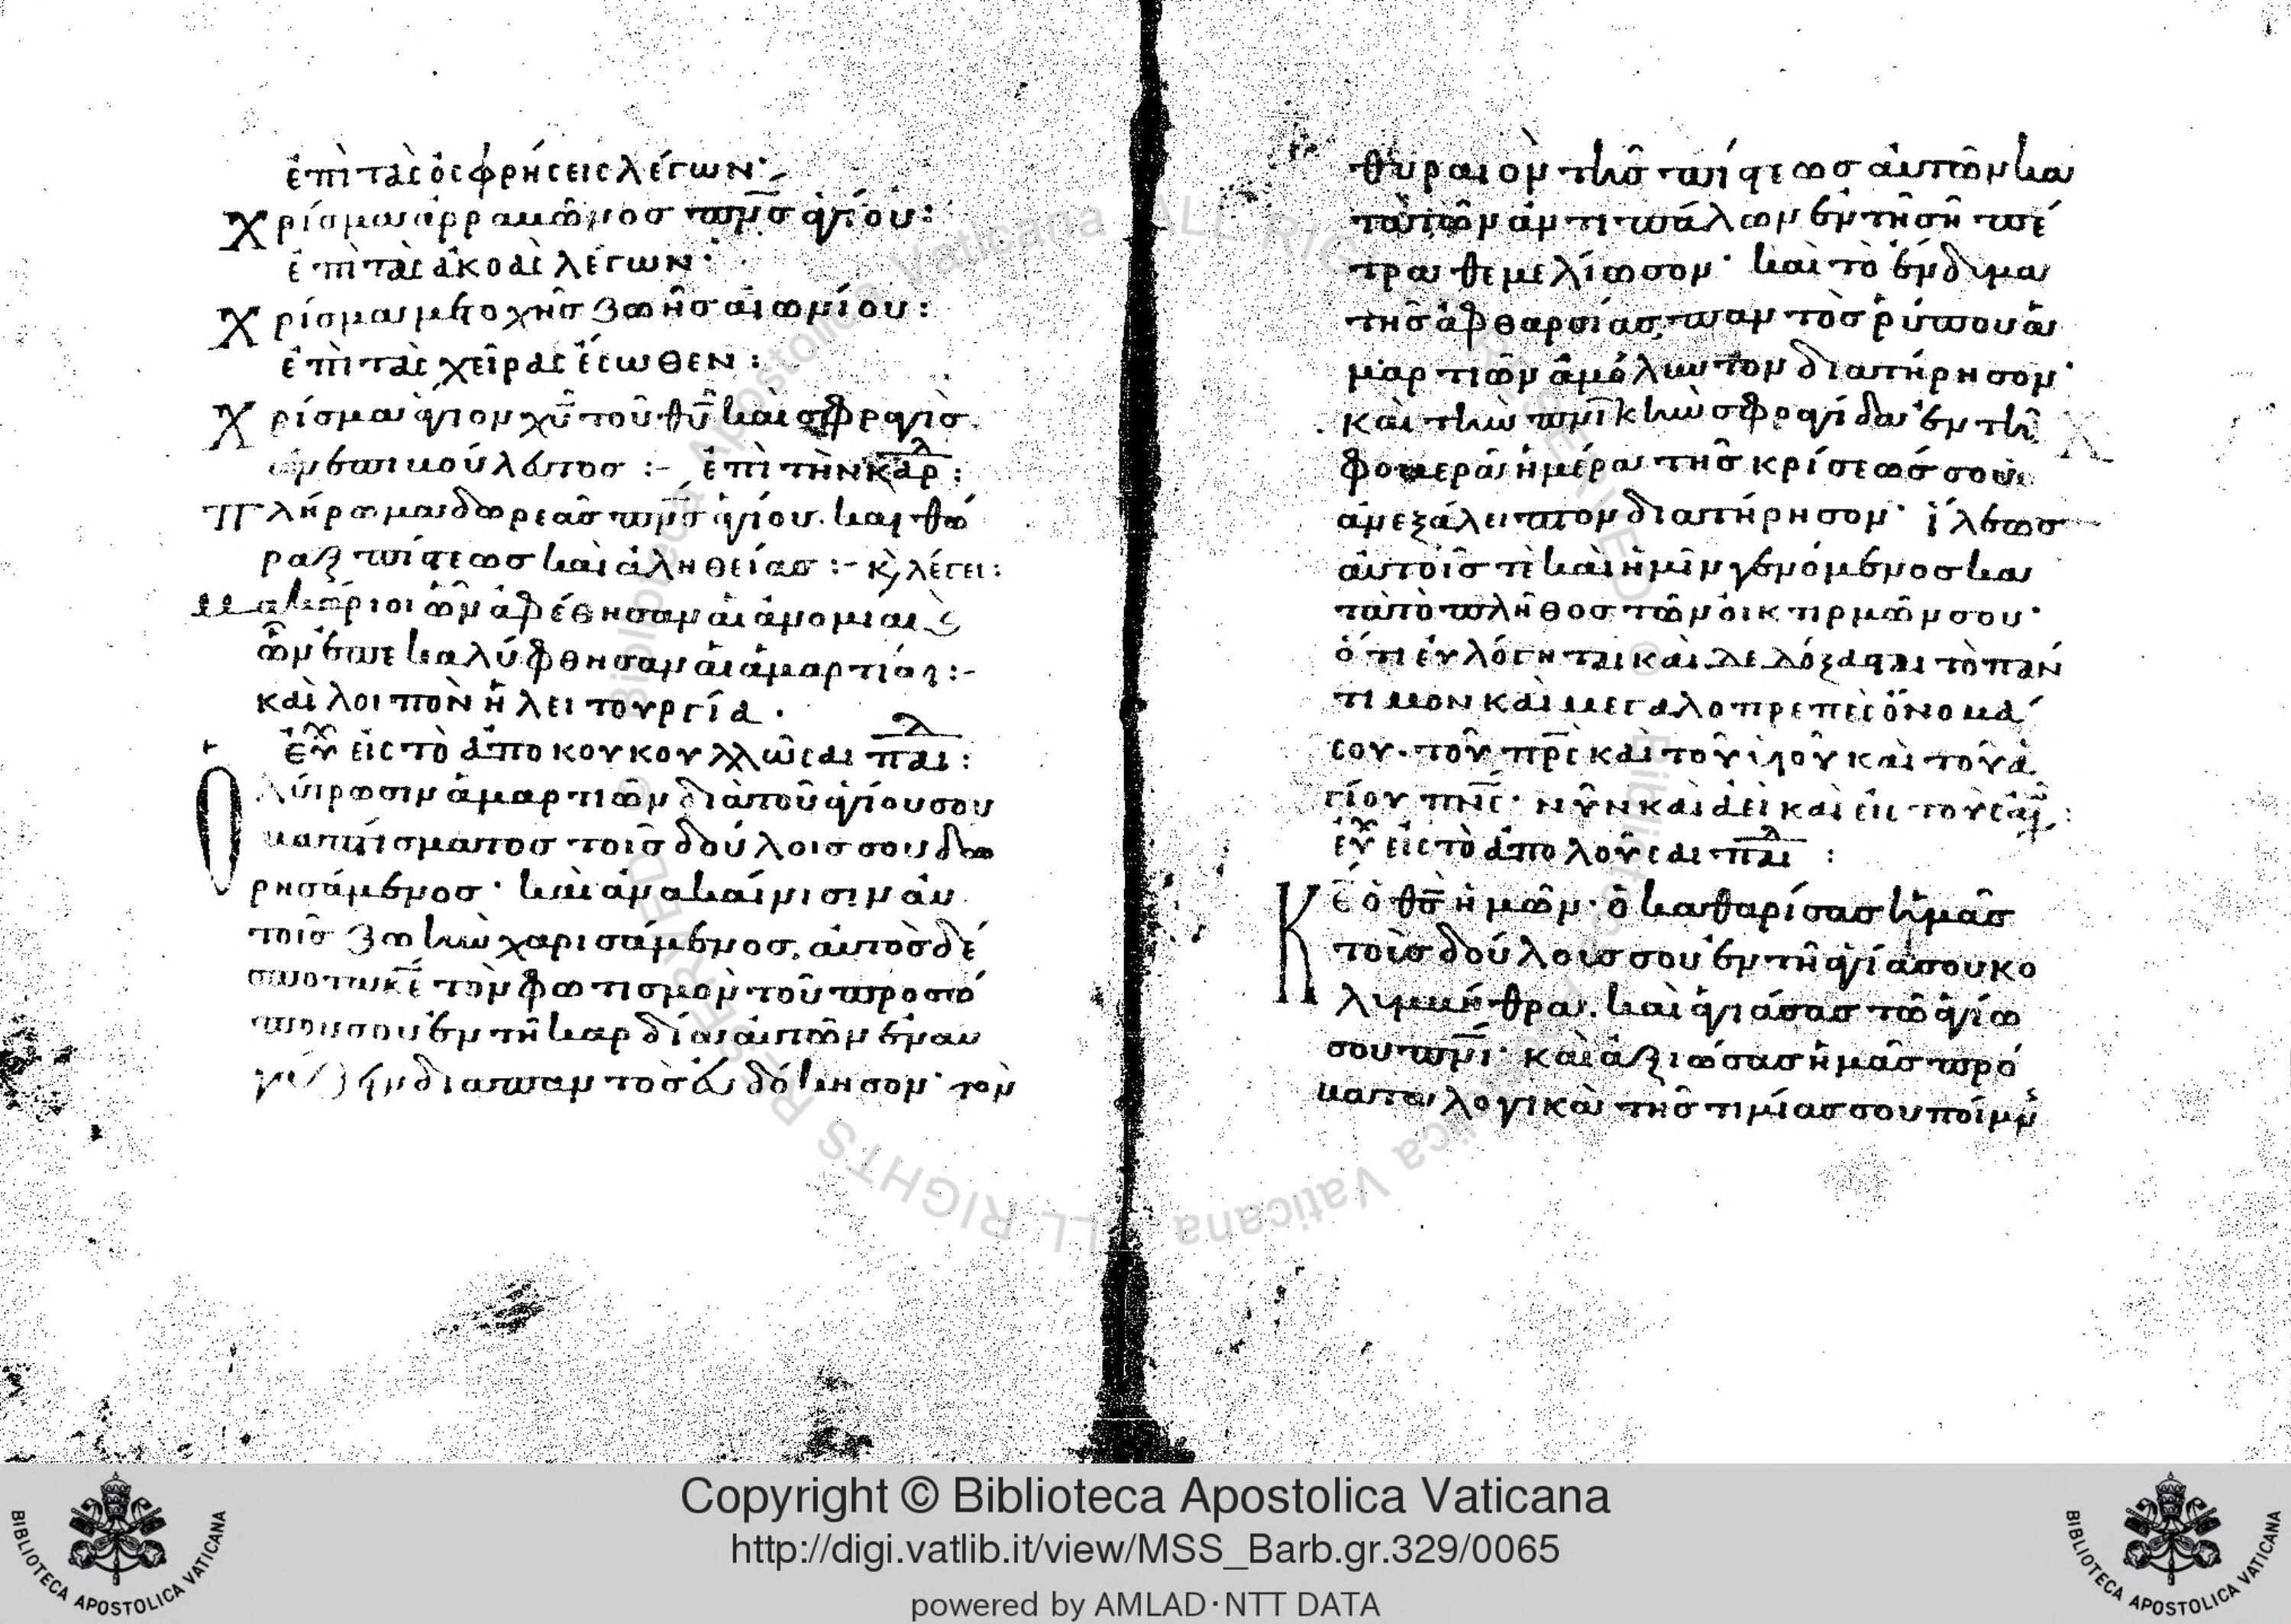 ἐπὶ τὰς ὀσφρήσεις λέγων·
Χρίσμα ἀρραβῶνος πν̅ς ἁγίου:
ἐπὶ τὰς ἀκοὰς λέγων·
Χρίσμα μετοχῆς ζωῆς αἰωνίου:
ἐπὶ τὰς χεῖρας ἔσωθεν:
Χρίσμα ἅγιον χυ̅ τοῦ θυ̅ καὶ σφραγὶς
ἀνεπιβούλευτος :- ἐπὶ τὴν καρδ:
Πλήρωμα δωρεᾶς πν̅ς ἁγίου. καὶ θώ
ραξ πίστεως καὶ ἀληθείας :- κ, λέγει:
Μακάριοι ὧν ἀφέθησαν αἱ ἀνομίαι
ὧν ἐπεκαλύφθησαν αἱ ἁμαρτίαι :-
καὶ λοιπὸν ἡ λειτουργία.
εὐχ εἰς τὸ ἀποκουκουλλῶσαι παι:
Ὁ λύτρωσιν ἁμαρτιῶν διὰ τοῦ ἁγίου σου
βαπτίσματος τοῖς δούλοις σου δω
ρησάμενος· καὶ ἀνακαίνισιν αὐ
τοῖς ζωὴν χαρισάμενος, αὐτὸς δέ
σποτα κε̅ τὸν φωτισμὸν τοῦ προσώ
που σου ἐν τῇ καρδία αὐτῶν ἐναυ
γάζειν διαπαντὸς εὐδόκησον· τὸν
θυραιὸν τῆς πίστεως αὐτῶν κα
τὰ τῶν ἀντιπάλων ἐν τῇ σῇ πέ
τρα θεμελίωσον· καὶ τὸ ἔνδυμα
τῆς ἀφθαρσίας, παντὸς ῥύπου ἁ
μαρτιῶν ἀμόλυντον διατήρησον·
καὶ τὴν πν̅ικὴν σφραγίδα ἐν τῇ
φοβερᾶ ἡμέρα τῆς κρίσεώς σου
ἀνεξάλειπτον διατήρησον· ἵλεως
αὐτοῖς τὲ καὶ ἡμῖν γενόμενος κα
τὰ τὸ πλῆθος τῶν οἰκτιρμῶν σου·
ὅτι εὐλόγηται καὶ δεδόξασται τὸ πάν
τιμον καὶ μεγαλοπρεπὲς ὄνομά
σου. τοῦ πρ̅ς καὶ τοῦ υἱοῦ καὶ τοῦ ἁ
γίου πν̅ς· νῦν καὶ ἀεὶ καὶ εἰς τοὺς αἰ:
εὐχ εἰς τὸ ἀπολοῦσαι παι :
Κε̅ ὁ θς̅ ἡμῶν· ὁ καθαρίσας ἡμᾶς
τοὺς δούλους σου ἐν τῇ ἁγία σου κο
λυμβήθρα. καὶ ἁγιάσας τῶ ἁγίω
σου πν̅ι· καὶ ἀξιώσας ἡμᾶς πρό
βατα λογικὰ τῆς τιμίας σου ποίμν
Copyright © Biblioteca Apostolica Vaticana
http://digi.vatlib.it/view/MSS_Barb.gr.329/0065
powered by AMLAD·NTT DATA
BIBLIOTECA APOSTOLICA VATICANA
BIBLIOTECA APOSTOLICA VATICANA